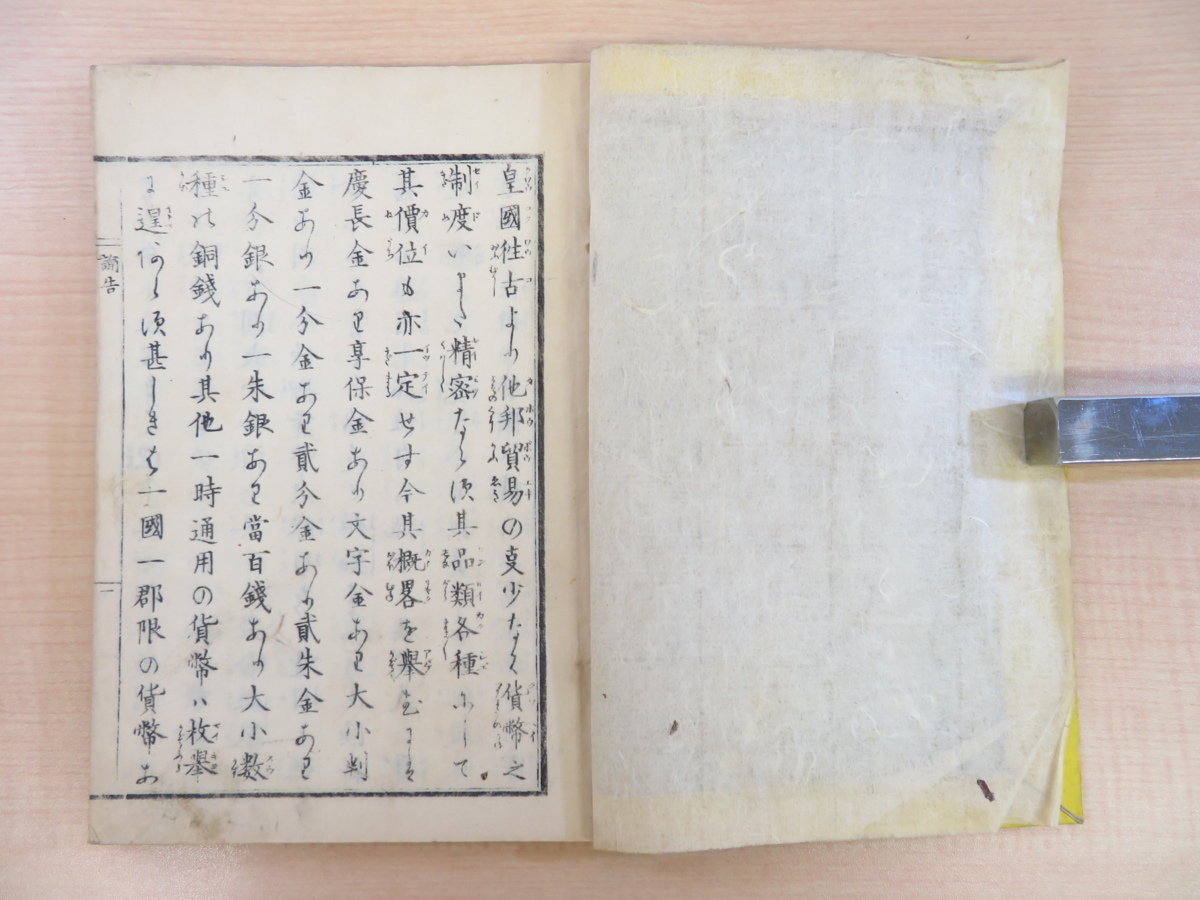 皇國徃古より他邦貿易の事少なく貨幣之
制度いまた精密ならす其品類各種にして
其價位も亦一定せす今其概畧を擧むには
慶長金あり享保金あり文字金あり大小判
金あり一分金あり貳分金あり貳朱金あり
一分銀あり一朱銀あり當百錢あり大小數
種の銅錢あり其他一時通用の貨幣ハ枚擧
に遑あらす甚しきは一國一郡限の貨幣あ
諭告
一